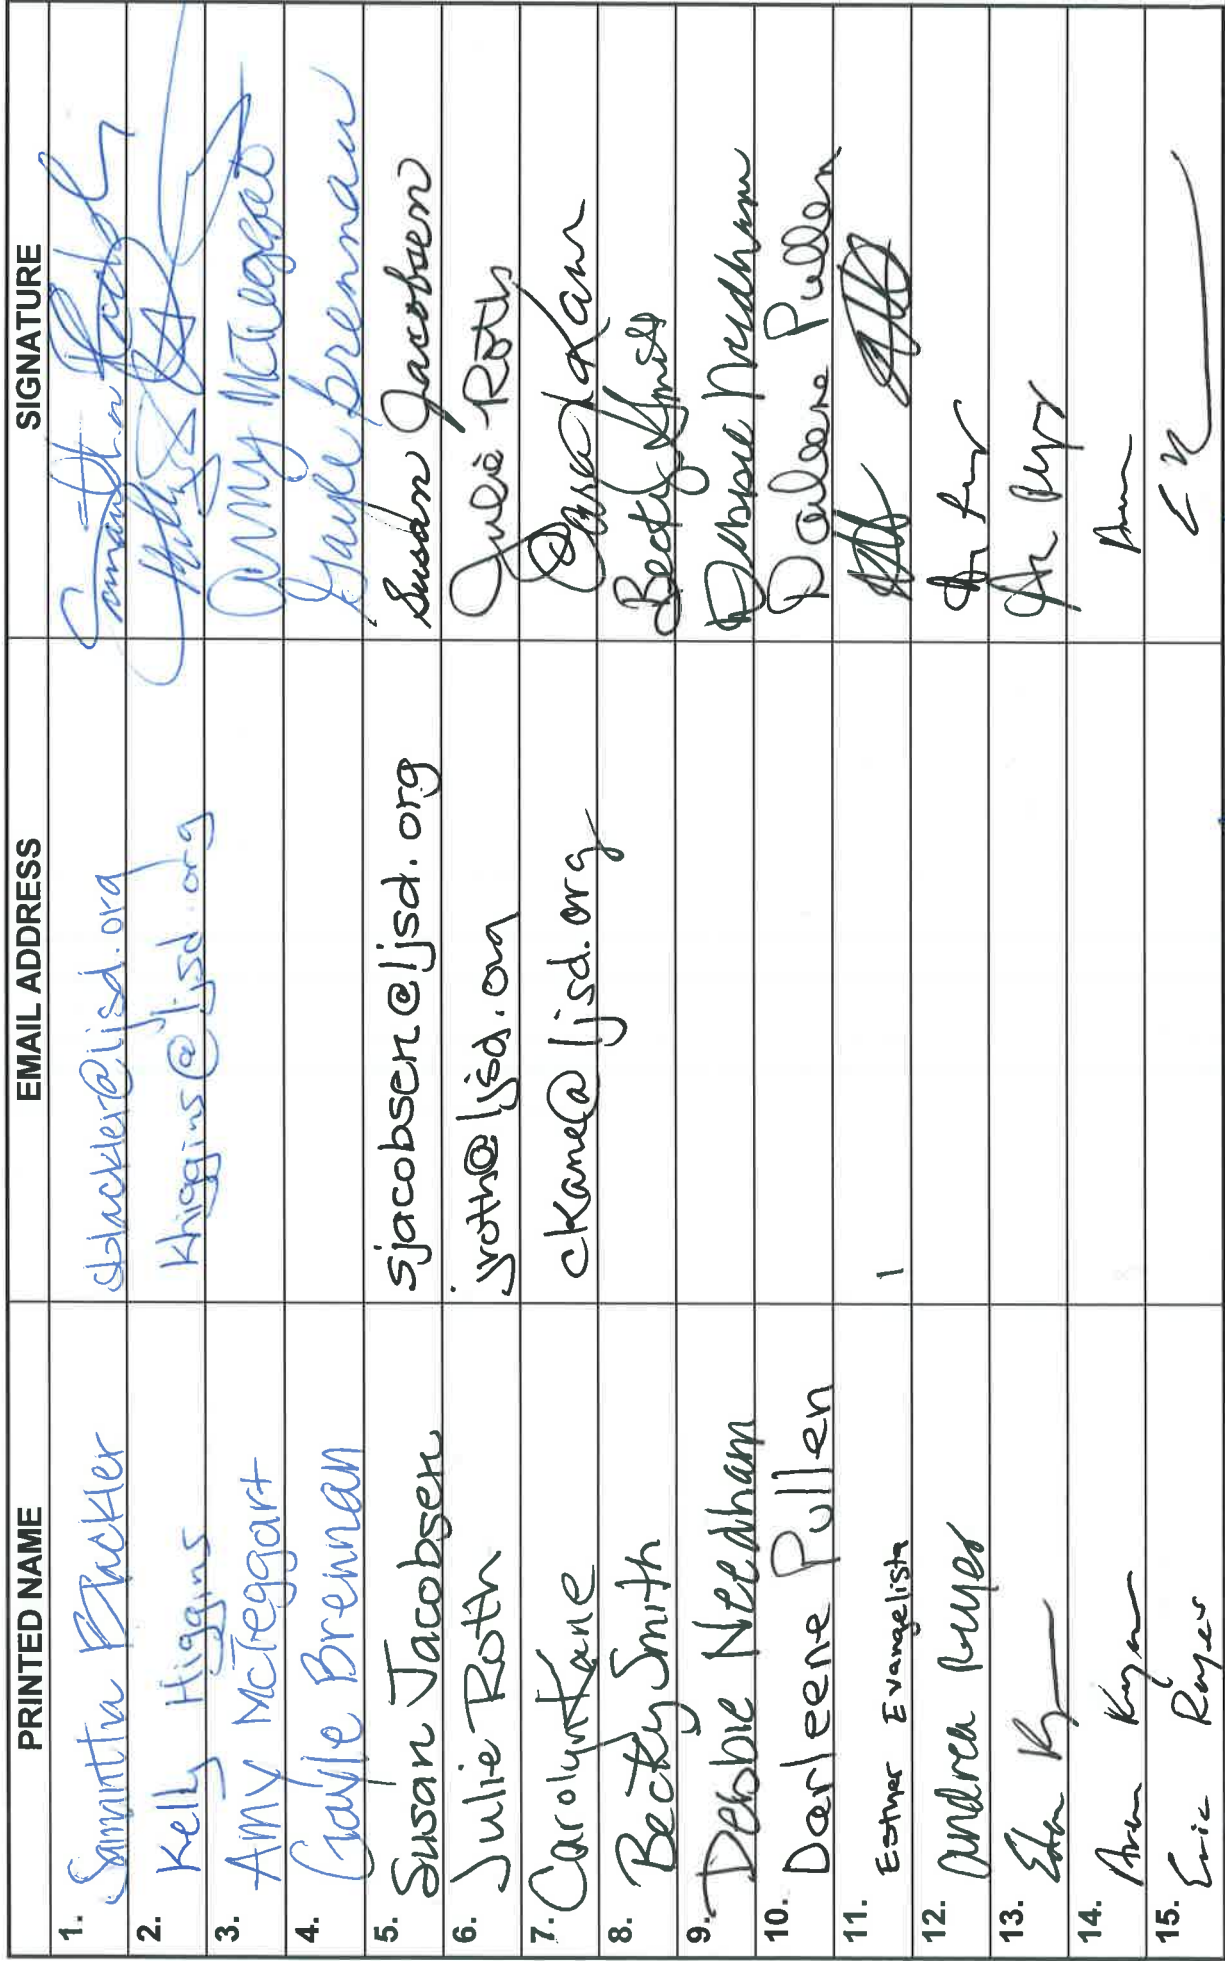 PRINTED NAME EMAIL ADDRESS SIGNATURE
1. Samantha Blackler sblackler@ljsd.org Samantha Blackler
2. Kelly Higgins khiggins@ljsd.org
3. Amy McTeggart Amy McTeggart
4. Gayle Brennan Gayle Brennan
5. Susan Jacobsen sjacobsen@ljsd.org Susan Jacobsen
6. Julie Roth jroth@ljsd.org Julie Roth
7. Carolyn Kane ckane@ljsd.org Kane
8. Becky Smith Becky Smith
9. Debbie Needham Debbie Needham
10. Darleene Pullen Darleene Pullen
11. Esther Evangelista
12. Andrea Reyes
13.
14.
15. Eric Reyes